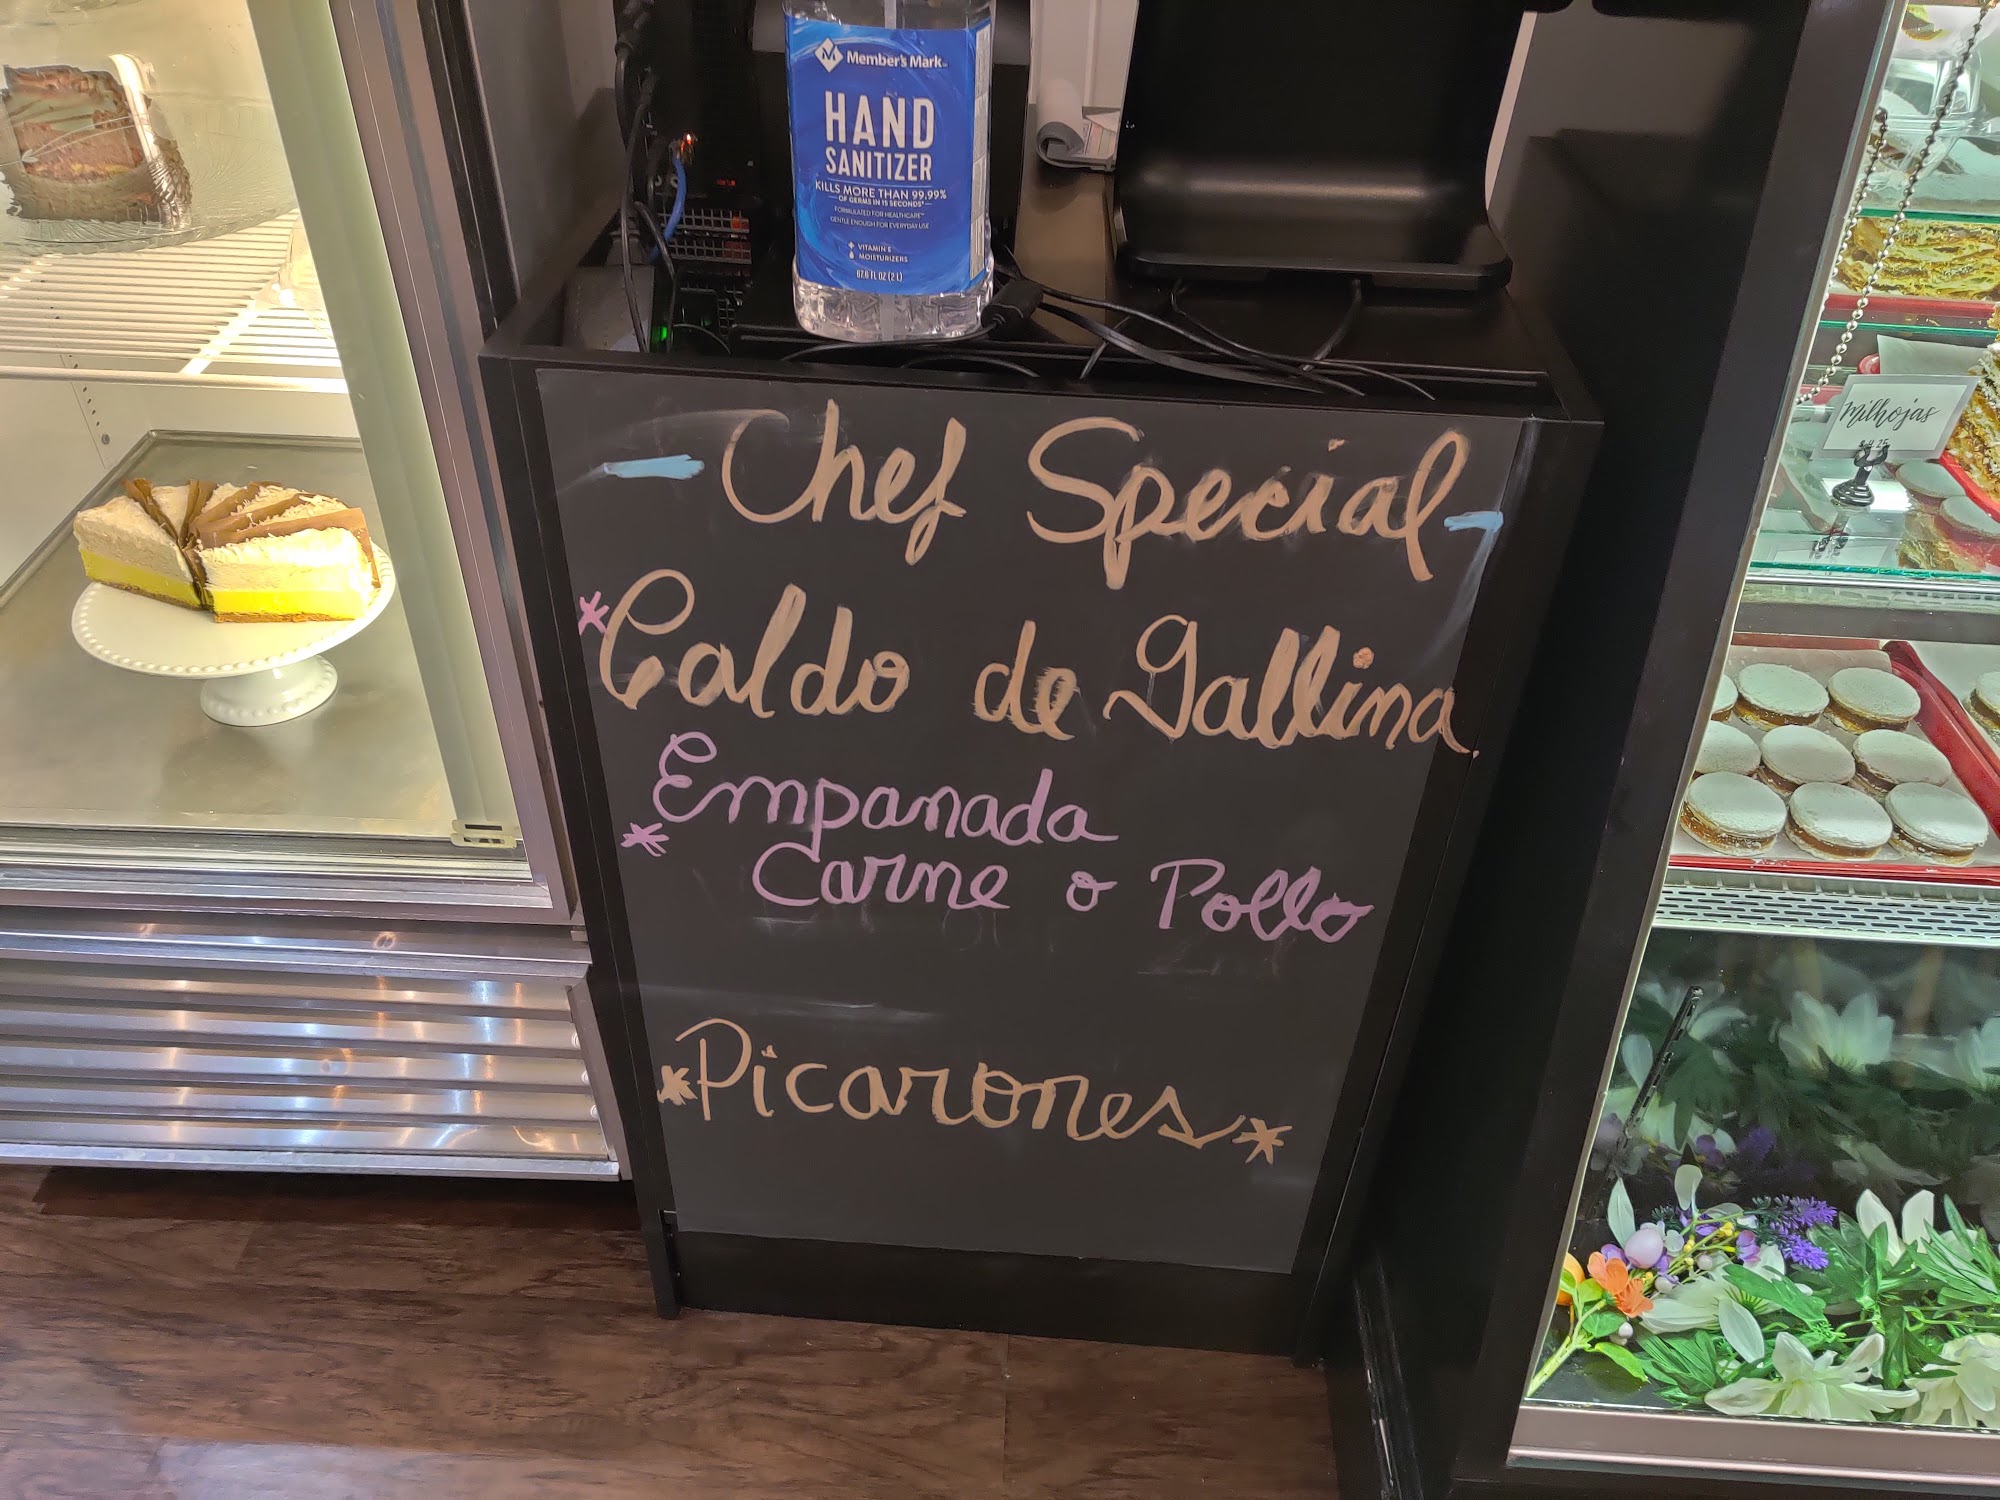 Member's Mark
HAND
SANITIZER
KILLS MORE THAN 99.99%
OF GERMS IN 15 SECONDS*
FORMULATED FOR HEALTHCARE
GENTLE ENOUGH FOR EVERYDAY USE
VITAMIN E
MOISTURIZERS
67.6 FL OZ (2 L)
- Chef Special -
*Caldo de Gallina
*Empanada
Carne o Pollo
*Picarones*
Milhojas